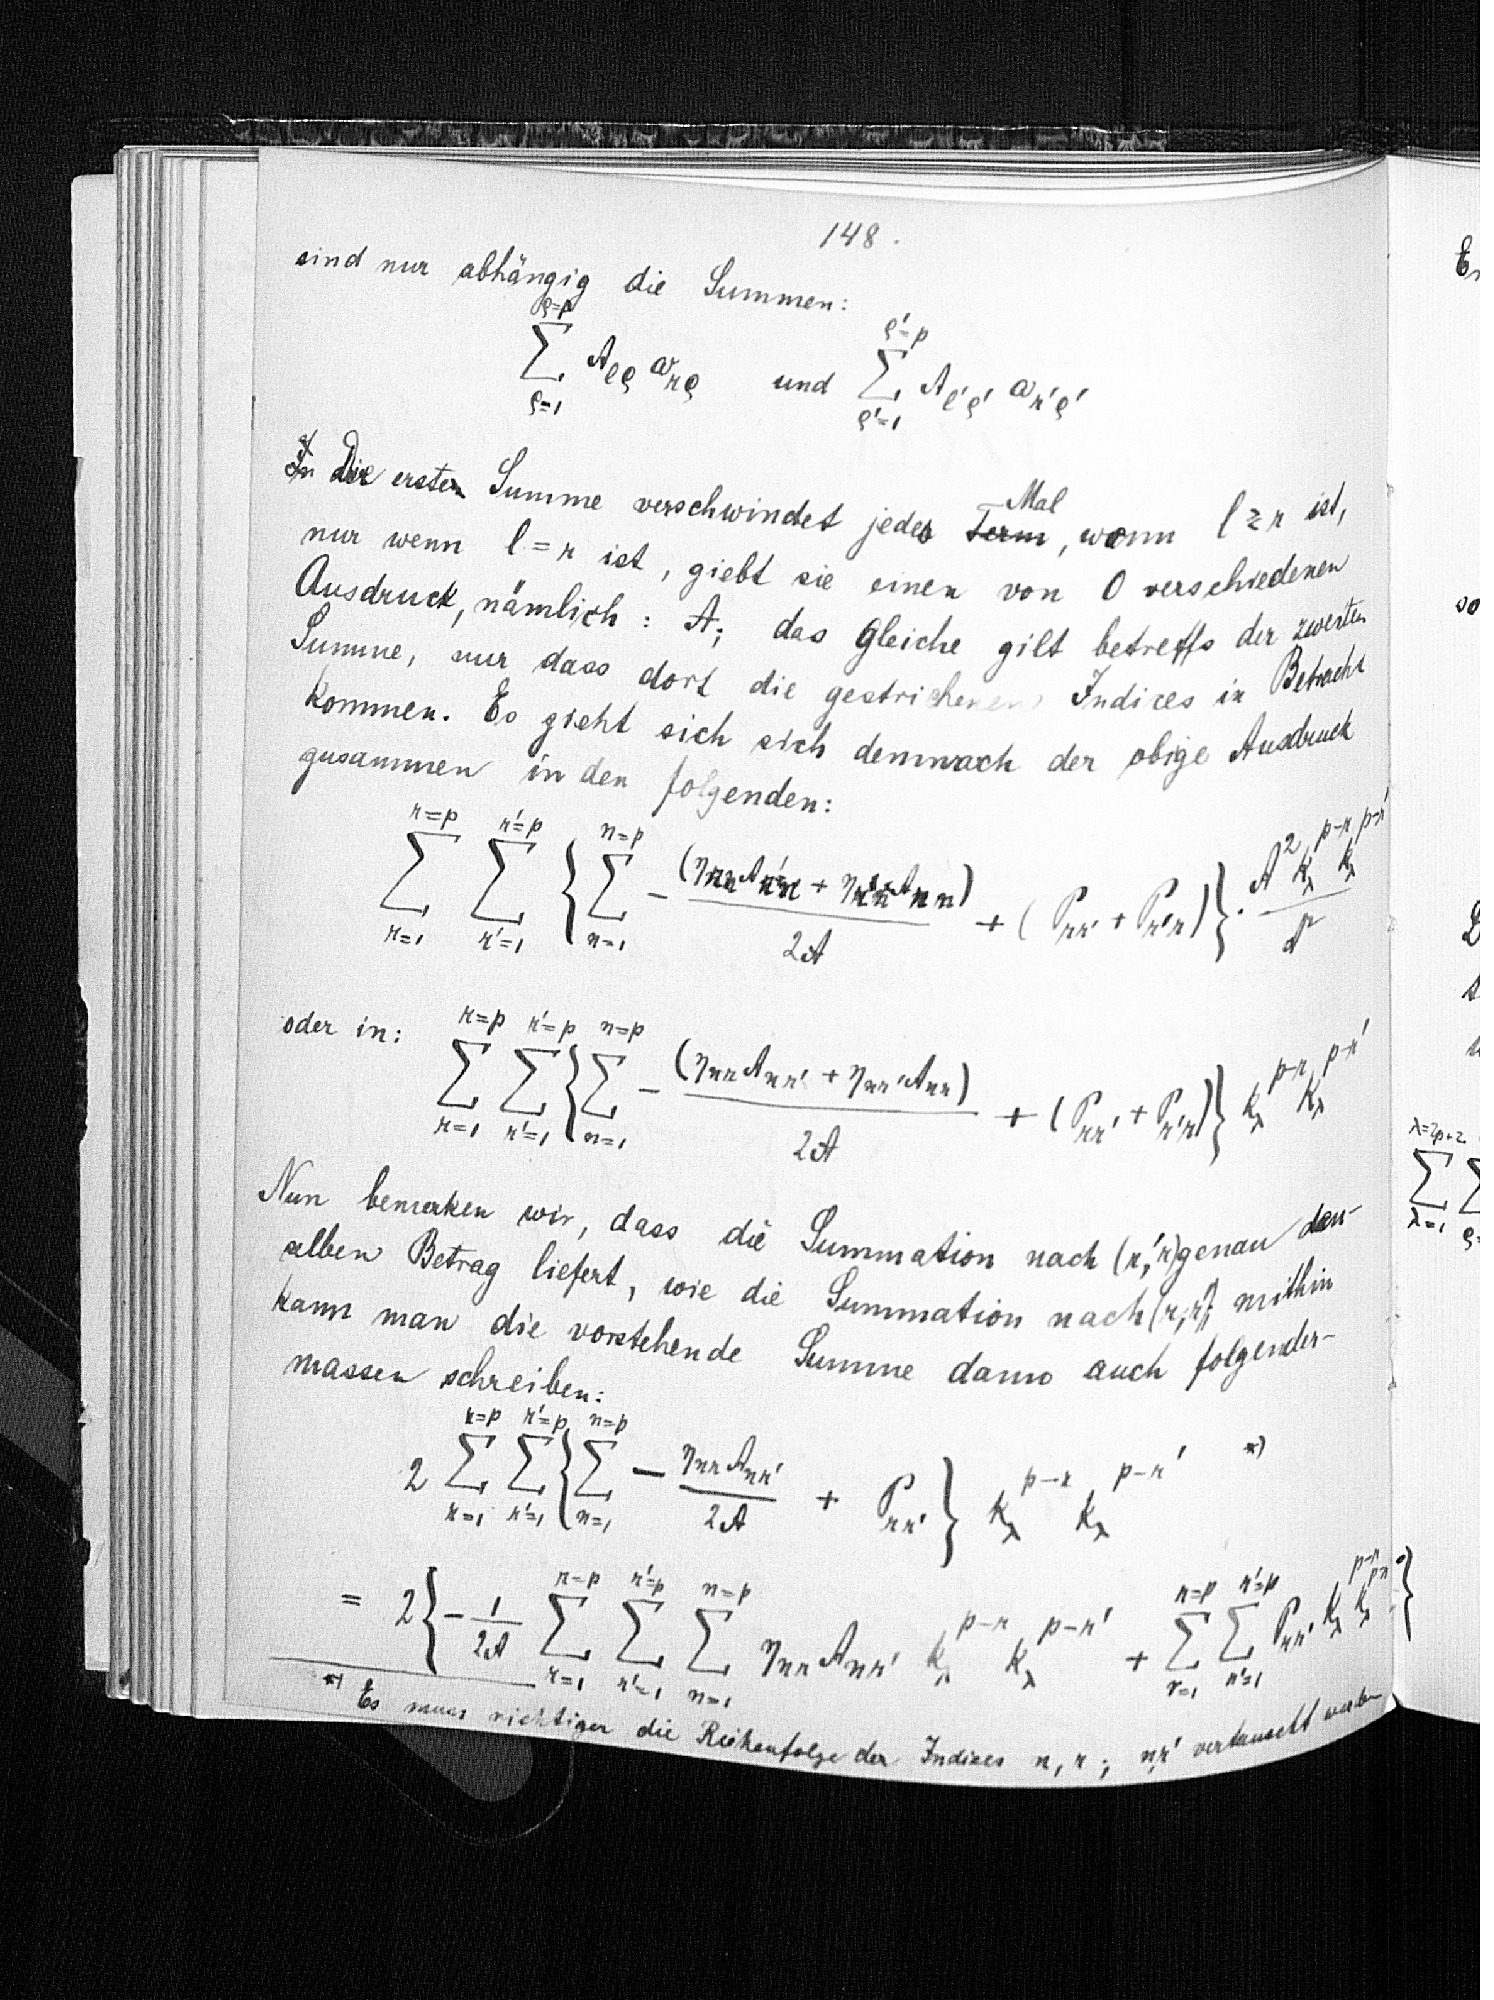 148.
sind nur abhängig die Summen:
∑_{ϱ=1}^{ϱ=p} A_{lϱ} ω_{rϱ} und ∑_{ϱ'=1}^{ϱ'=p} A_{l'ϱ'} ω_{r'ϱ'}
Die erste Summe verschwindet jedes Mal, wenn l ≷ r ist,
nur wenn l = r ist, giebt sie einen von 0 verschiedenen
Ausdruck, nämlich: A; das gleiche gilt betreffs der zweiten
Summe, nur dass dort die gestrichenen Indices in Betracht
kommen. Es zieht sich sich demnach der obige Ausdruck
zusammen in den folgenden:
∑_{r=1}^{r=p} ∑_{r'=1}^{r'=p} { ∑_{n=1}^{n=p} − (η_{nr} A_{nr'} + η_{nr'} A_{nr}) / 2A + (P_{rr'} + P_{r'r}) } · A² k_λ^{p−r} k_λ^{p−r'} / A²
oder in: ∑_{r=1}^{r=p} ∑_{r'=1}^{r'=p} { ∑_{n=1}^{n=p} − (η_{nr} A_{nr'} + η_{nr'} A_{nr}) / 2A + (P_{rr'} + P_{r'r}) } k_λ^{p−r} k_λ^{p−r'}
Nun bemerken wir, dass die Summation nach (r',r) genau den-
selben Betrag liefert, wie die Summation nach (r,r'); mithin
kann man die vorstehende Summe dann auch folgender-
massen schreiben:
2 ∑_{r=1}^{r=p} ∑_{r'=1}^{r'=p} { ∑_{n=1}^{n=p} − η_{nr} A_{nr'} / 2A + P_{rr'} } k_λ^{p−r} k_λ^{p−r'} *)
= 2 { − 1/2A ∑_{r=1}^{r=p} ∑_{r'=1}^{r'=p} ∑_{n=1}^{n=p} η_{nr} A_{nr'} k_λ^{p−r} k_λ^{p−r'} + ∑_{r=1}^{r=p} ∑_{r'=1}^{r'=p} P_{rr'} k_λ^{p−r} k_λ^{p−r'} }
*) Es muss richtiger die Reihenfolge der Indices n, r; n,r' vertauscht werden